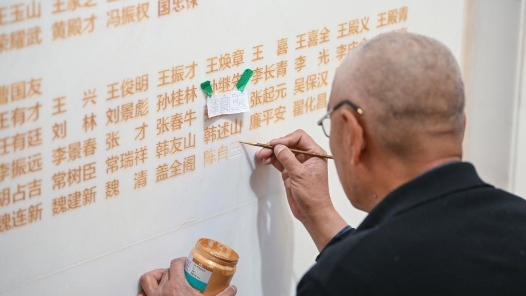 王玉山 王家之
荣耀武 黄殿才 冯振权 国忠保
曹国友 王俊明 王振才 王焕章 王喜 王喜全 王殿义 王殿青
王有才 王兴 刘景彪 孙桂林 孙继先 李长青 李光 李
王有廷 刘林 张才 张春牛 张起元 吴保汉
李振远 李景春 常瑞祥 韩友山 韩述山 廉平安 翟化昌
胡占吉 常树臣 魏清 盖全阁 陈自
魏连新 魏建新